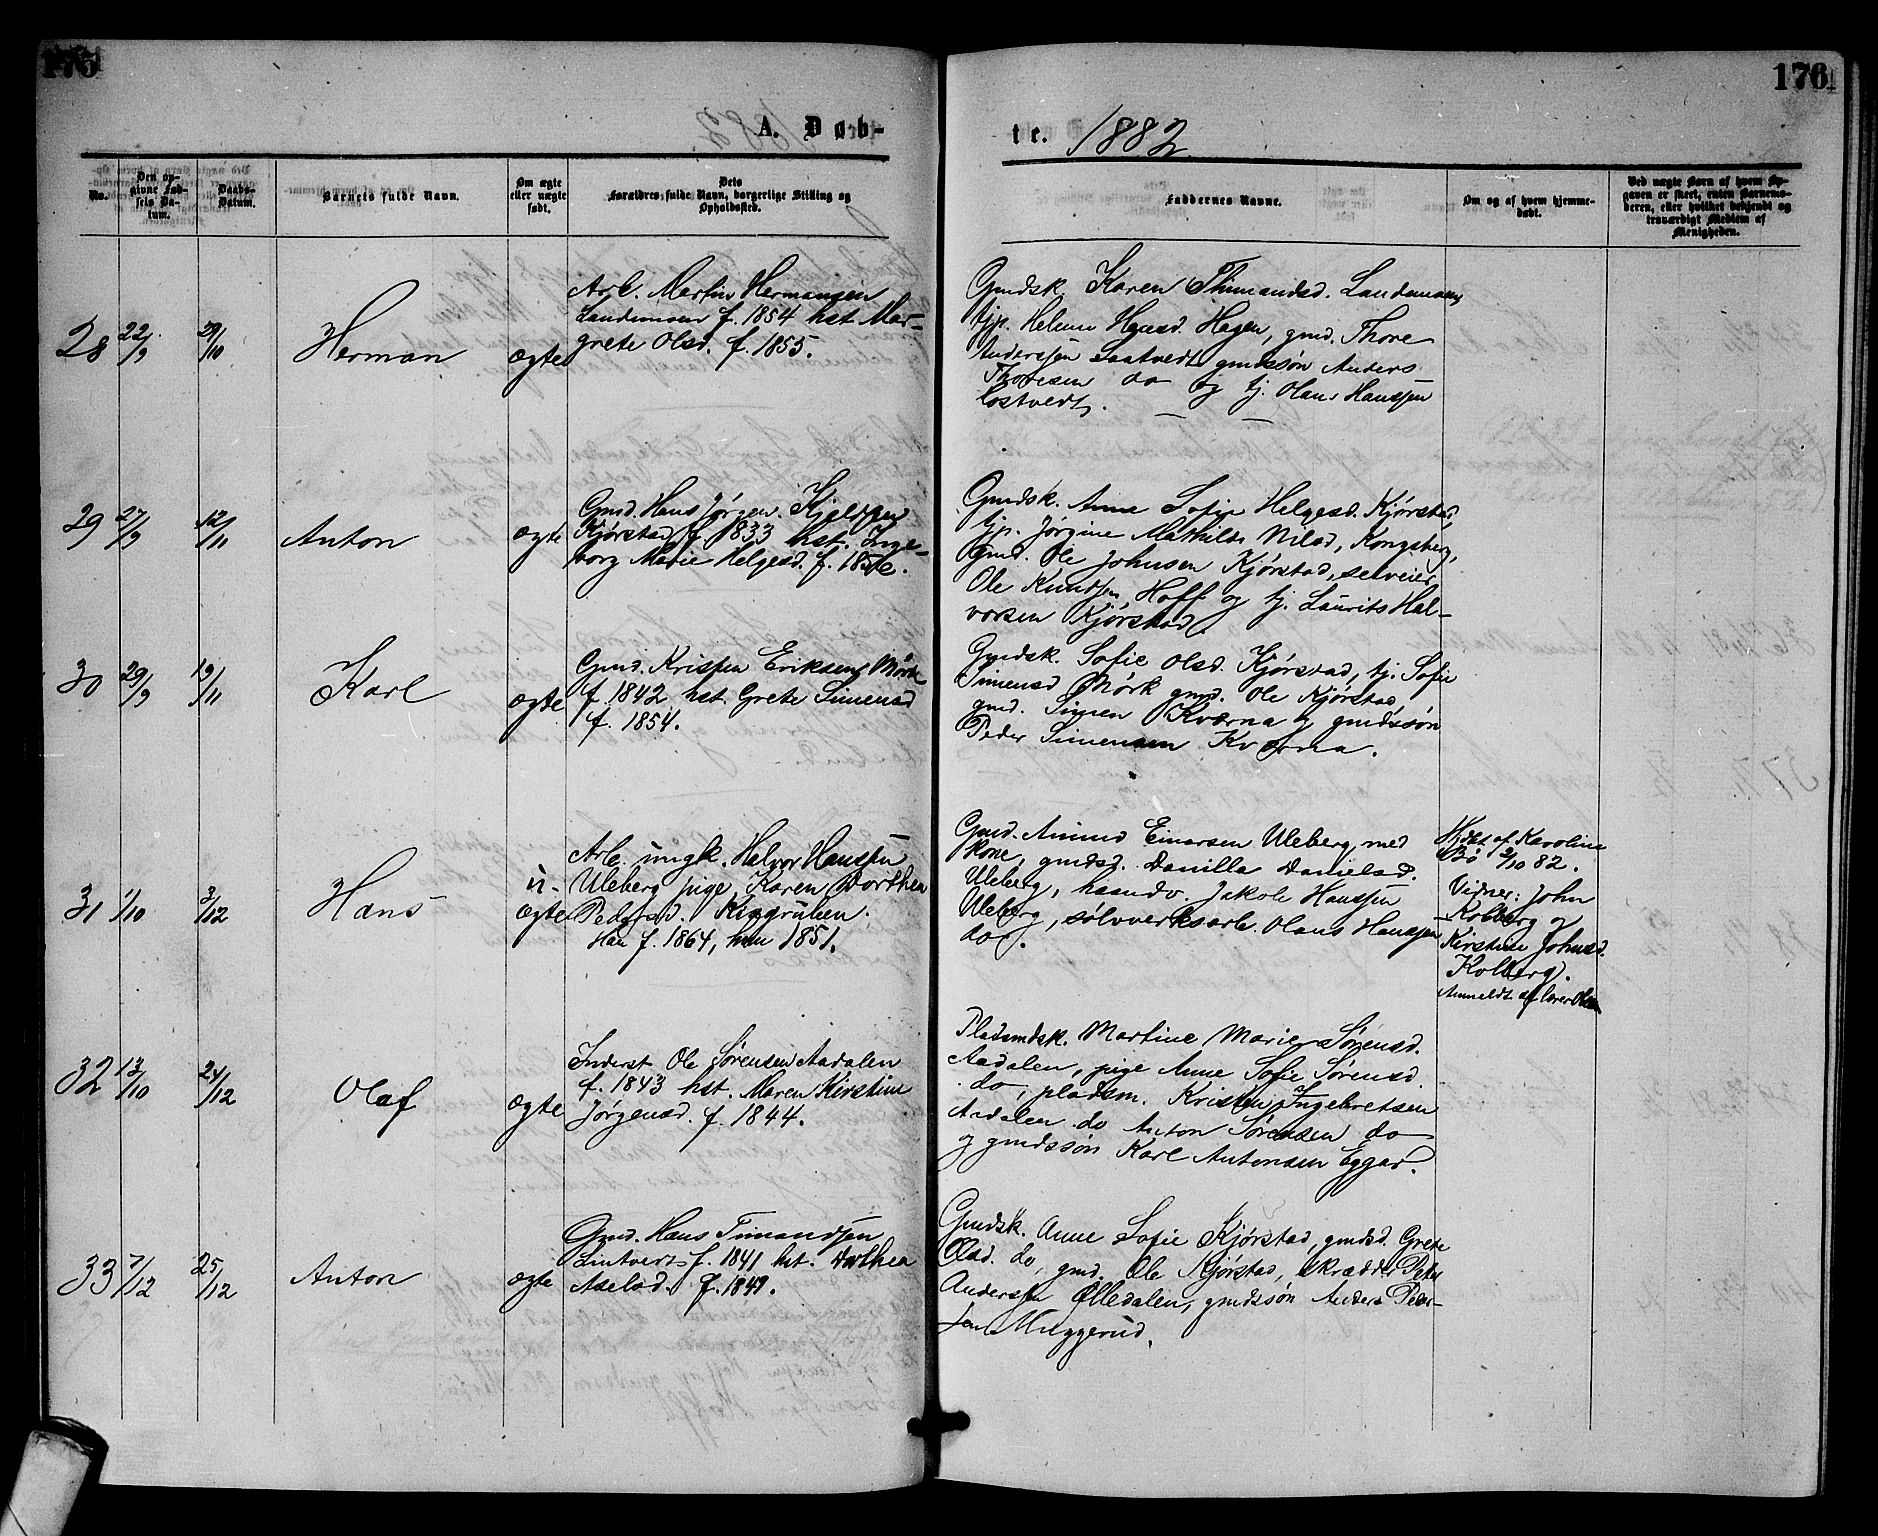 176
176
A. Døb-
te. 1882
No.
Den op-
givne Fød-
sels Da-
tum.
Daabs-
Datum.
Barnets fulde Navn.
Om ægte
eller uægte
født.
Dets
Forældres fulde Navn, borgerlige Stilling og
Opholdssted.
Faddernes Navne.
Om og af hvem hjemme-
døbt.
Ved uægte Børn af hvem Op-
gaven er skeet, enten Barnemo-
deren, eller hvilket bekjendt og
troværdigt Medlem af
Menigheden.
28 22/9 29/10 Herman ægte
Arb. Martin Hermansen
Landemoen f. 1854 hst Mar-
grete Olsd. f. 1855.
Gmdsk. Karen Thimandsd. Landemoen,
tjp. Helene Hansd. Hagen, gmd. Thore
Anderssen Saatvedt gmdssøn Anders
Thoresen do og tj. Olaus Hanssen
Tostvedt.
29 27/9 12/11 Anton ægte
Gmd. Hans Jørgen Kjeldsen
Kjørstad f. 1833 hst. Inge-
borg Marie Helgesd. f. 1856.
Gmdsk. Anna Sofie Helgesd. Kjørstad,
tjp. Jørgine Mathilde Nilsd, Kongsberg,
Gmd. Ole Johnsen Kjørstad, selveier
Ole Knudsen Hoff og tj. Laurits Hal-
vorsen Kjørstad.
30 29/9 19/11 Karl ægte
Gmd. Krissen Eriksen Mørk
f. 1842 hst. Grete Simensd
f. 1854.
Gmdsk. Sofie Olsd. Kjørstad, tj. Sofie
Simensd Mørk gmd. Ole Kjørstad,
gmd. Simen Kværna og gmdssøn
Peder Simensen Kværna.
31 1/10 3/12 Hans u-
ægte
Arb. ungk. Halvor Hanssen
Uleberg pige Karen Dorthea
Pedersd. Kisgruben.
Han f. 1864, hun 1851.
Gmd. Amund Einarsen Uleberg med
kone, gmdsd. Danilla Danielsd.
Uleberg, haandv. Jakob Hanssen
Uleberg, sølvverksarb. Olaus Hanssen
do.
Hjdbt af Karoline
Bø 2/10 82.
Vidner: John
Kolberg og
Kirstine Johnsd.
Kolberg.
Anmeldt af lærer Olsen
32 13/10 24/12 Olaf ægte
Inderst Ole Sørensen Aadalen
f. 1843 hst. Maren Kirstine
Jørgensd. f. 1844.
Pladsmdsk. Martine Marie Sørensd.
Aadalen, pige Anne Sofie Sørensd.
do, pladsm. Kristen Ingebretsen
Aadalen do Anton Sørensen do
og gmdssøn Karl Antonsen Eggar.
33 7/12 25/12 Anton ægte
Gmd. Hans Timandsen
Lintvert f. 1841 hst. Dorthea
Axelsd. f. 1849.
Gmdsk. Anne Sofie Kjørstad, gmdsd. Grete
Olsd. do, gmd. Ole Kjørstad, skrædder Peter
Anderssen Ølledalen, gmdssøn Anders Peder-
sen Muggerud.